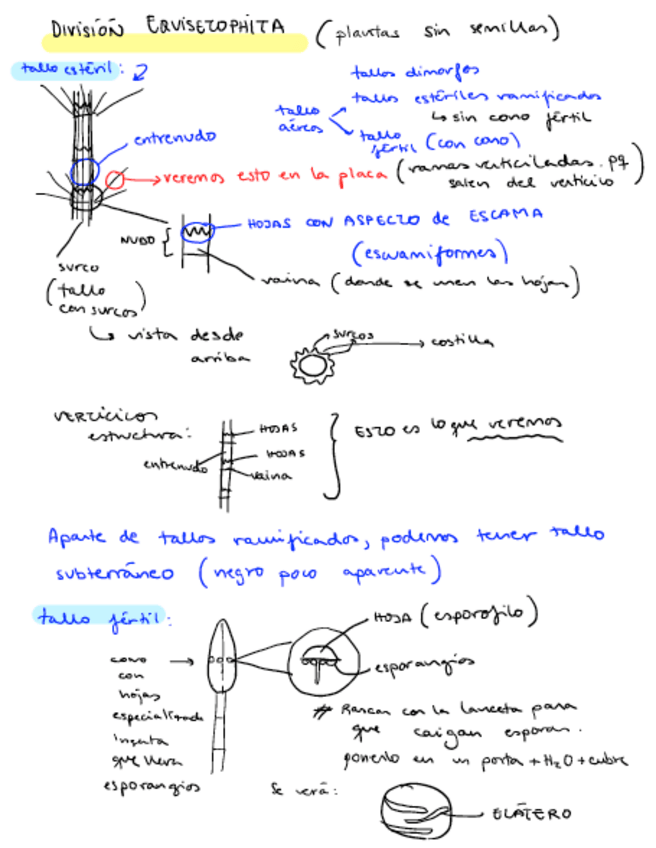 DIVISIÓN EQUISETOPHITA (plantas sin semillas)
tallo estéril:
tallos dimorfos
tallos estériles ramificados
↳ sin cono fértil
tallo aéreos
tallo fértil (con cono)
entrenudo
→ veremos esto en la placa (ramas verticiladas. pq
salen del verticilo)
HOJAS CON ASPECTO de ESCAMA
(escuamiformes)
NUDO
vaina (donde se unen las hojas)
surco
(tallo
con surcos)
↳ vista desde
arriba
surcos
costilla
VERTICICIOS
estructura:
HOJAS
entrenudo
HOJAS
vaina
ESTO es lo que veremos
Aparte de tallos ramificados, podemos tener tallo
subterráneo (negro poco aparente)
tallo fértil:
HOJA (esporofilo)
esporangios
cono →
con
hojas
especializada
que lleva
esporangios
# Rascar con la lanceta para
que caigan esporas.
ponerlo en un porta + H₂O + cubre
Se verá:
ELÁTERO